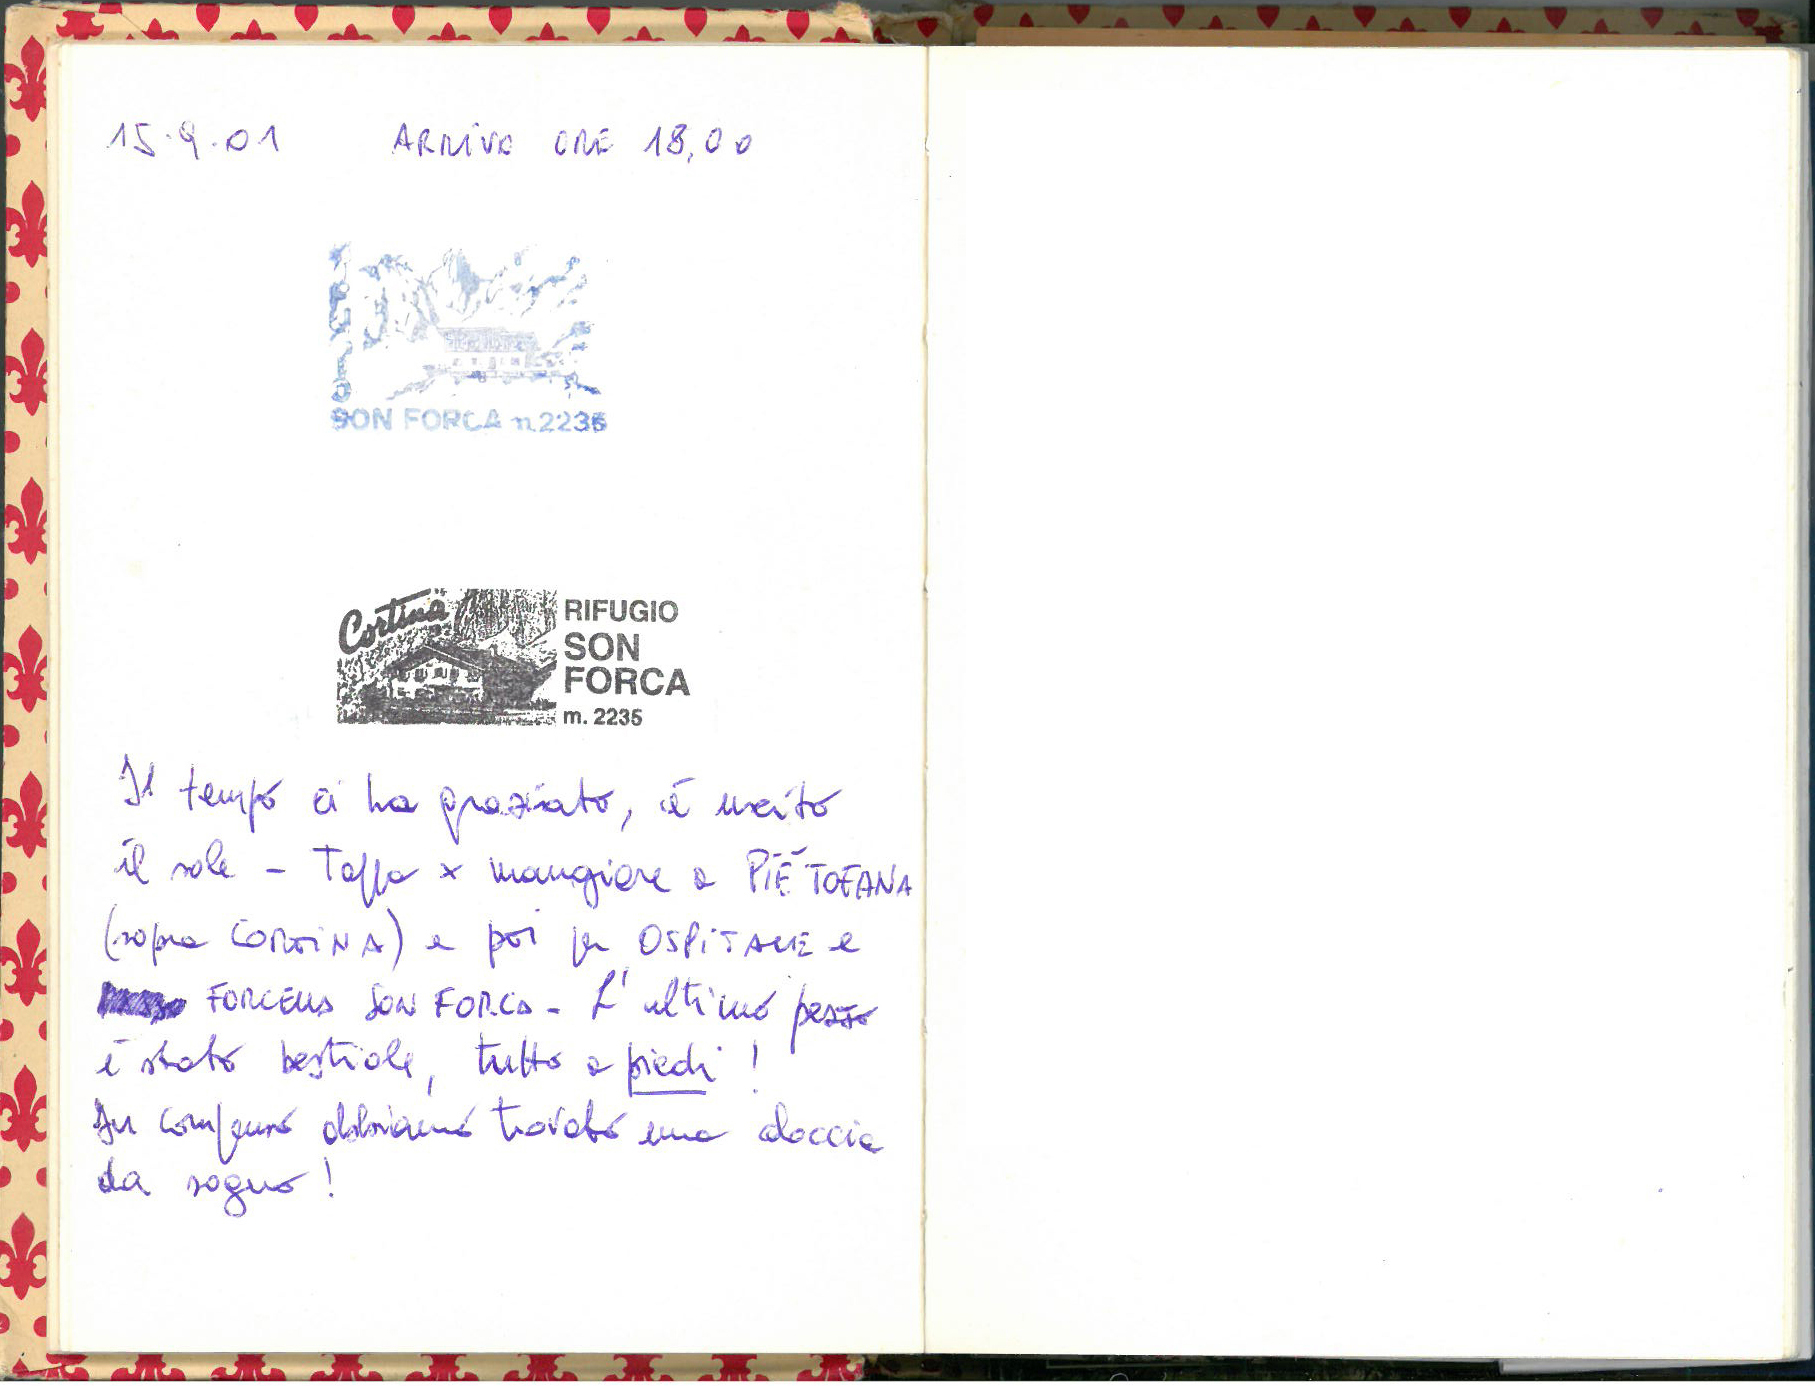 15.9.01 ARRIVO ORE 18,00
SON FORCA m 2235
Cortina
RIFUGIO
SON
FORCA
m. 2235
Il tempo ci ha graziato, è uscito
il sole - Tappa x mangiare a PIÈ TOFANA
(sopra CORTINA) e poi per OSPITALE e
FORCELLA SON FORCA - L'ultimo pezzo
è stato bestiale, tutto a piedi !
In compenso abbiamo trovato una doccia
da sogno !